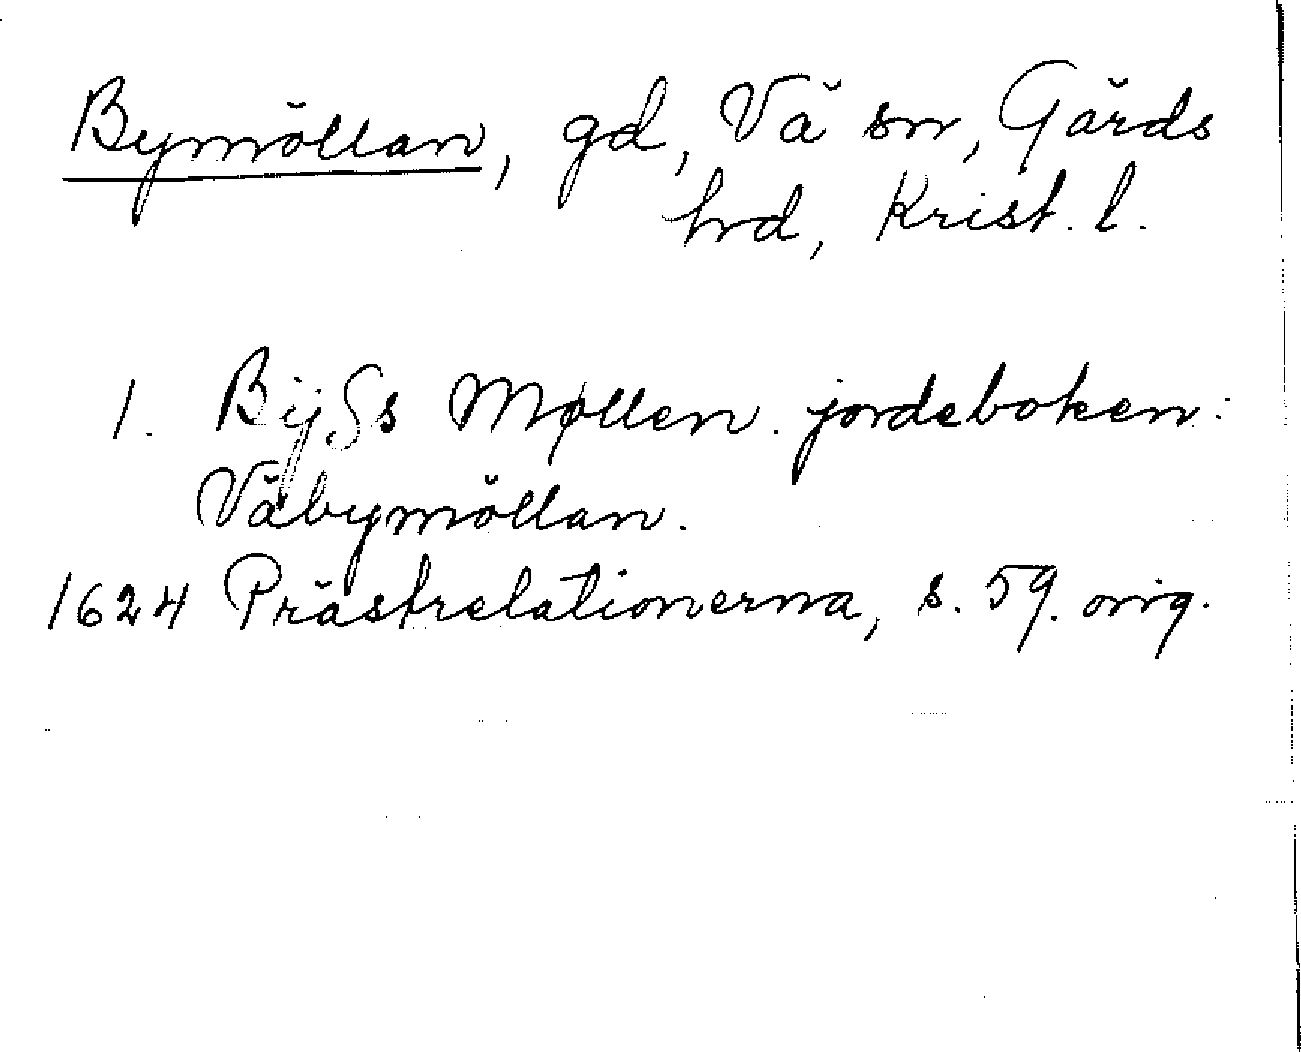 Bymöllan, gd, Vä sn, Gärds
hrd, Krist. l.
1. Bijgs Møllen. jordeboken:
Väbymöllan.
1624 Prästrelationerna, s. 59. orig.